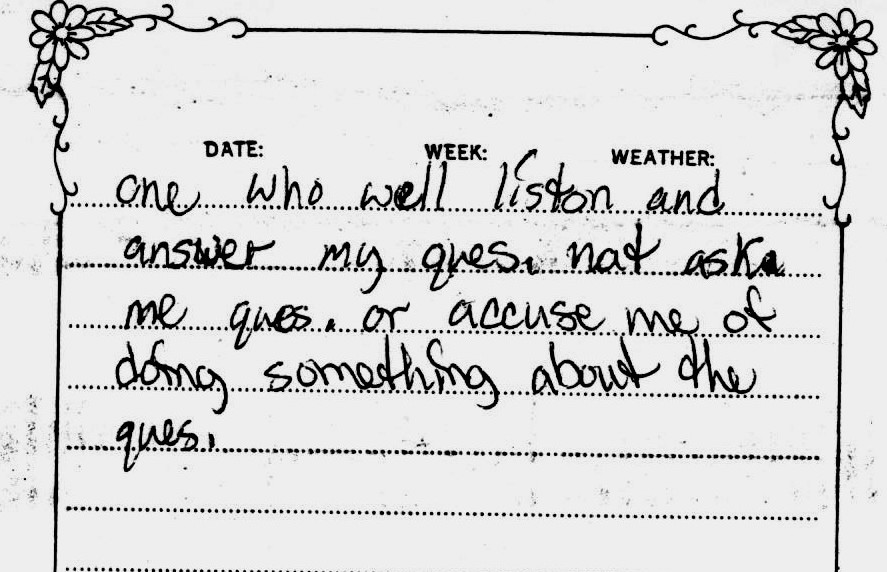 DATE: WEEK: WEATHER:
one who well liston and
answer my ques. not ask
me ques. or accuse me of
doing something about the
ques.